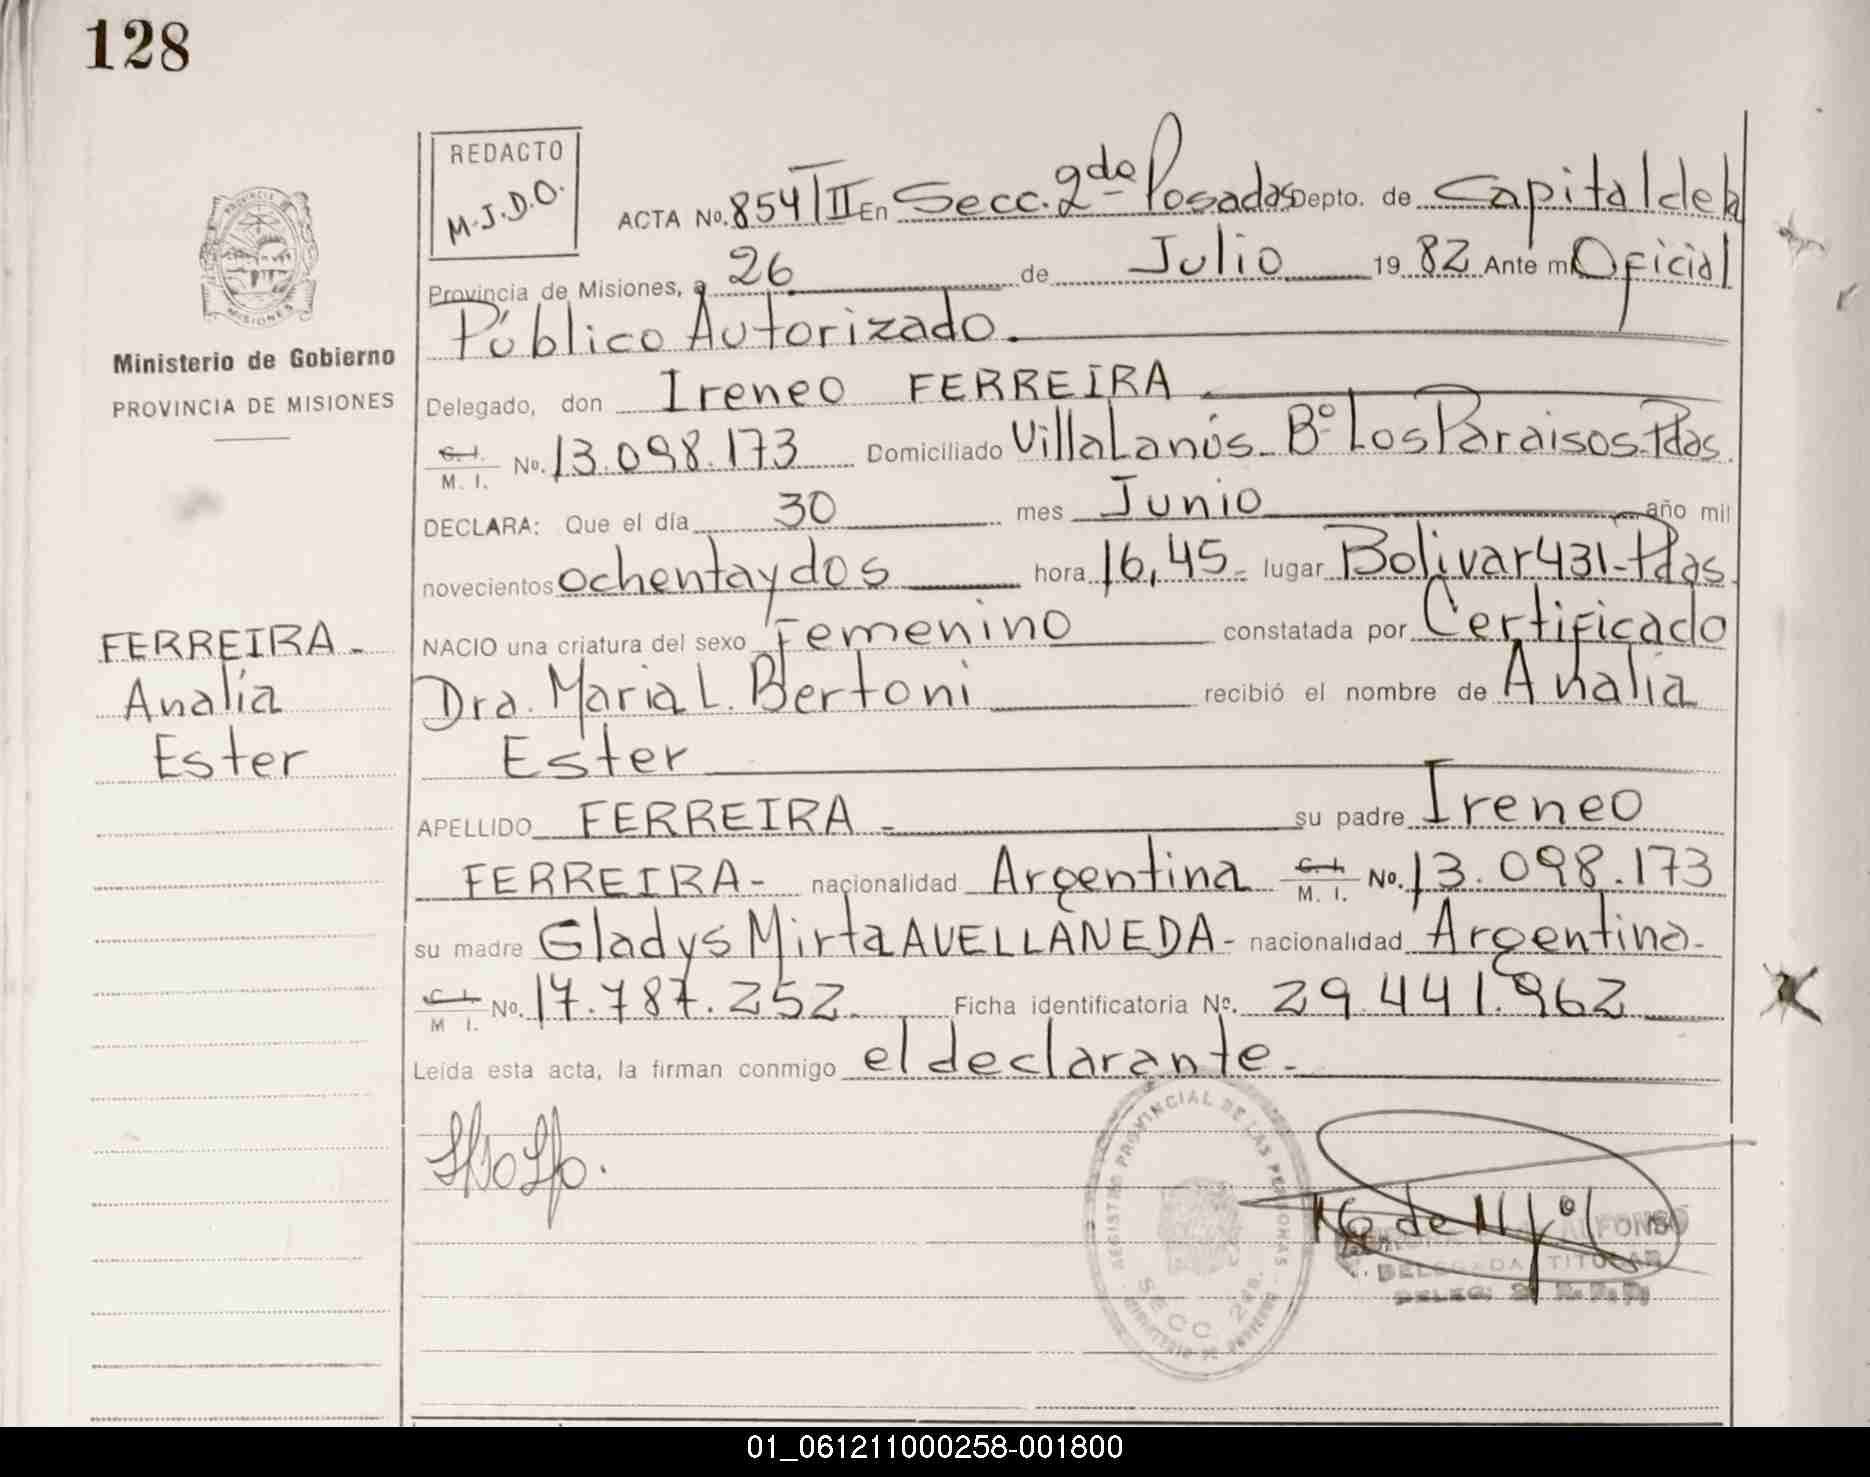 128
REDACTO
M.J.D.O.
ACTA No. 854/II En Secc. 2da Posadas Depto. de Capital de la
Provincia de Misiones, a 26 de Julio 1982 Ante mi Oficial
Público Autorizado.
Ministerio de Gobierno
PROVINCIA DE MISIONES
Delegado, don Ireneo FERREIRA
C. I. M. I. No. 13.098.173 Domiciliado Villa Lanús. Bº Los Paraisos-Pdas.
DECLARA: Que el día 30 mes Junio año mil
novecientos ochenta y dos hora 16,45- lugar Bolivar 431-Pdas.
NACIO una criatura del sexo Femenino constatada por Certificado
Dra. Maria L. Bertoni recibió el nombre de Analía
Ester
FERREIRA-
Analía
Ester
APELLIDO FERREIRA- su padre Ireneo
FERREIRA- nacionalidad Argentina C. I. M. I. No. 13.098.173
su madre Gladys Mirta AVELLANEDA- nacionalidad Argentina-
C. I. M I. No. 17.787.252. Ficha identificatoria No. 29.441.962
Leída esta acta, la firman conmigo el declarante-
REGISTRO PROVINCIAL DE LAS PERSONAS
SECC 2da.
MINISTERIO DE GOBIERNO
ALFONSO
DELEGADA TITULAR
01_061211000258-001800